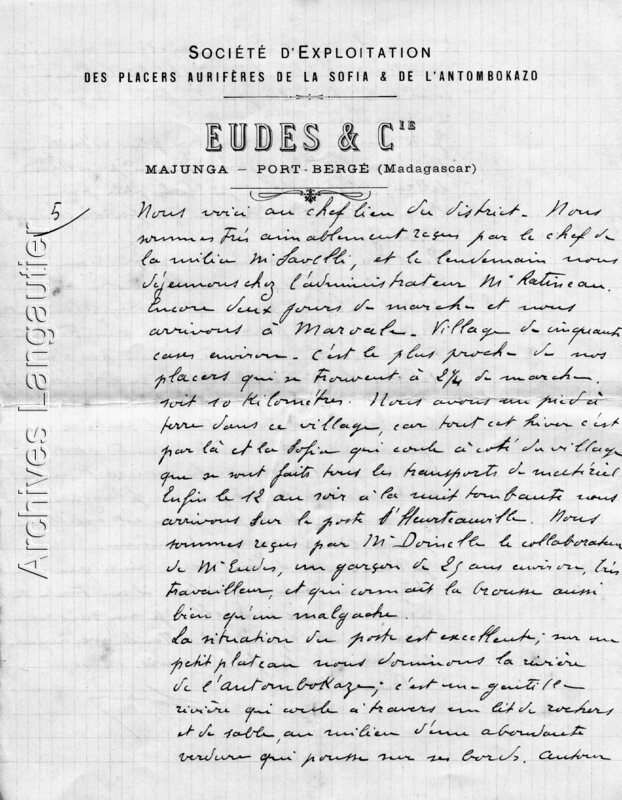 SOCIÉTÉ D'EXPLOITATION
DES PLACERS AURIFÈRES DE LA SOFIA & DE L'ANTOMBOKAZO
EUDES & CIE
MAJUNGA – PORT-BERGÉ (Madagascar)
5
Nous voici au chef lieu du district. Nous
sommes très aimablement reçus par le chef de
la milice Mr Savelli, et le lendemain nous
déjeunons chez l'administrateur Mr Ratineau.
Encore deux jours de marche et nous
arrivons à Marovale. Village de cinquante
cases environ. C'est le plus proche de nos
placers qui se trouvent à 2h/4 de marche.
soit 10 Kilomètres. Nous avons un pied à
terre dans ce village, car tout cet hiver c'est
par là et la Sofia qui coule à coté du village
que se sont faits tous les transports de matériel
Enfin le 12 au soir à la nuit tombante nous
arrivons sur le poste d'Heurteauville. Nous
sommes reçus par Mr Doinelle le collaborateur
de Mr Eudes, un garçon de 25 ans environ, très
travailleur, et qui connaît la brousse aussi
bien qu'un malgache.
La situation du poste est excellente; sur un
petit plateau nous dominons la rivière
de l'Antombokazo; c'est une gentille
rivière qui coule à travers un lit de rochers
et de sable, au milieu d'une abondante
verdure qui pousse sur ses bords. Autour
Archives Langautier